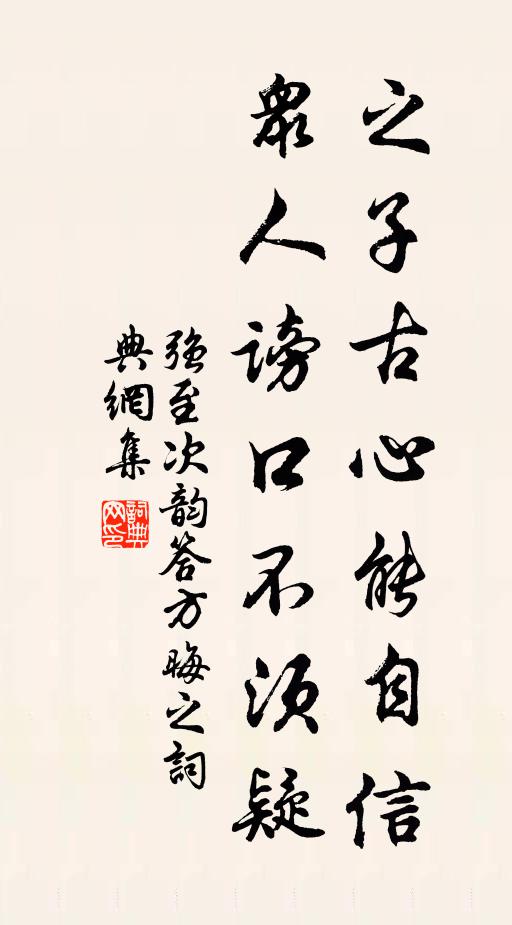 之子古心能自信
眾人謗口不須疑
強至次韵答方晦之詞
典網集
詞典
网印